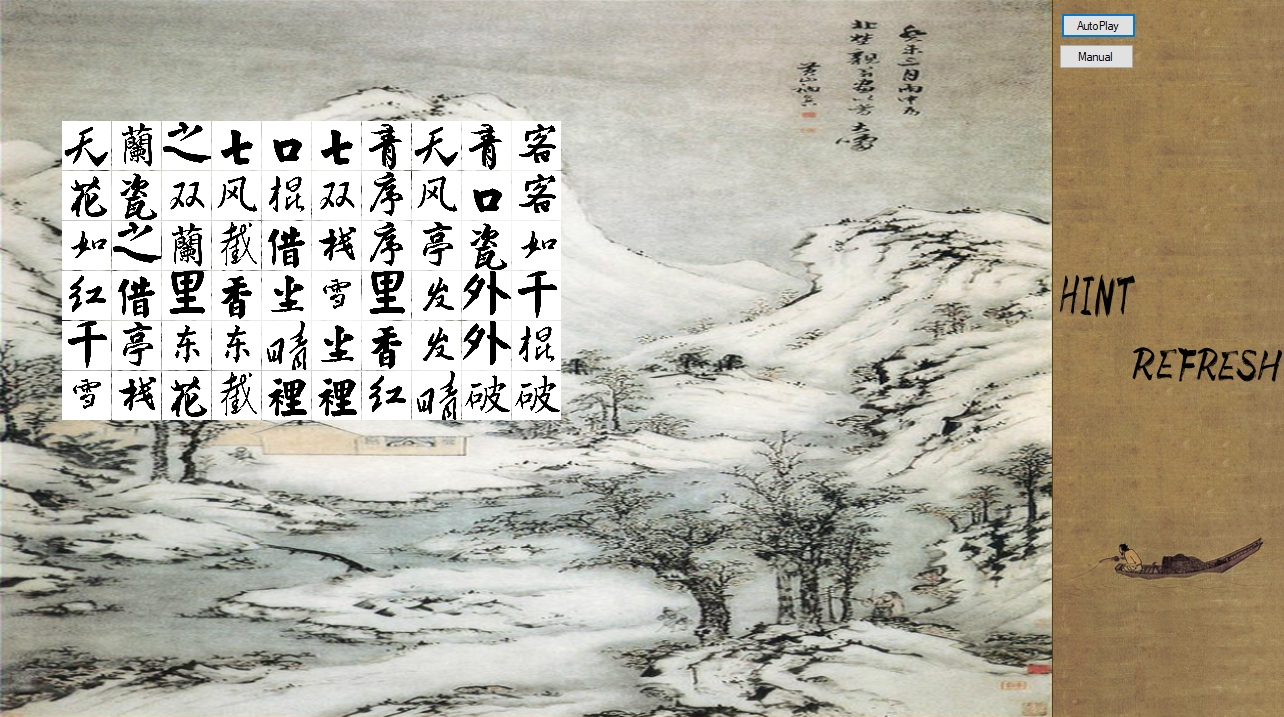 AutoPlay
Manual
HINT
REFRESH
天蘭之七口七青天青客
花瓷双风棍双序风口客
如之蘭截借栈序亭瓷如
红借里香尘雪里发外干
干亭东东晴尘香发外棍
雪栈花截裡裡红晴破破